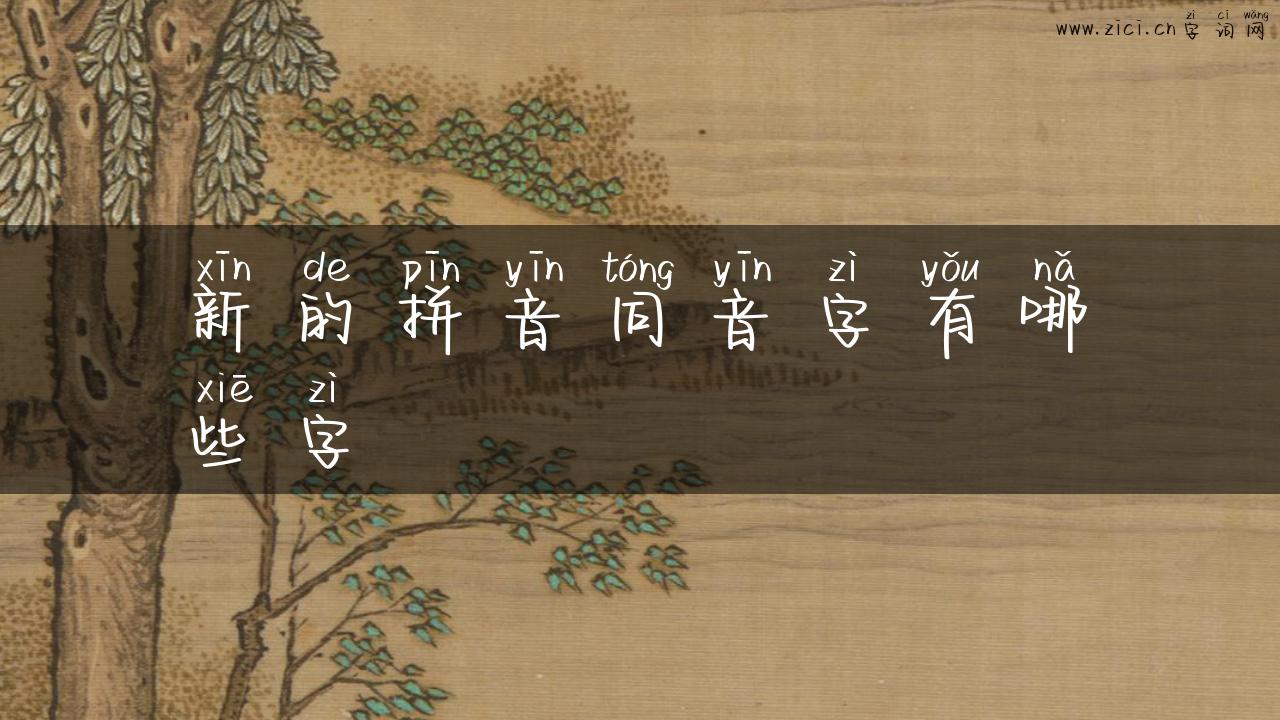 zì cí wǎng
www.zici.cn 字词网
xīn de pīn yīn tóng yīn zì yǒu nǎ
新的拼音同音字有哪
xiē zì
些字